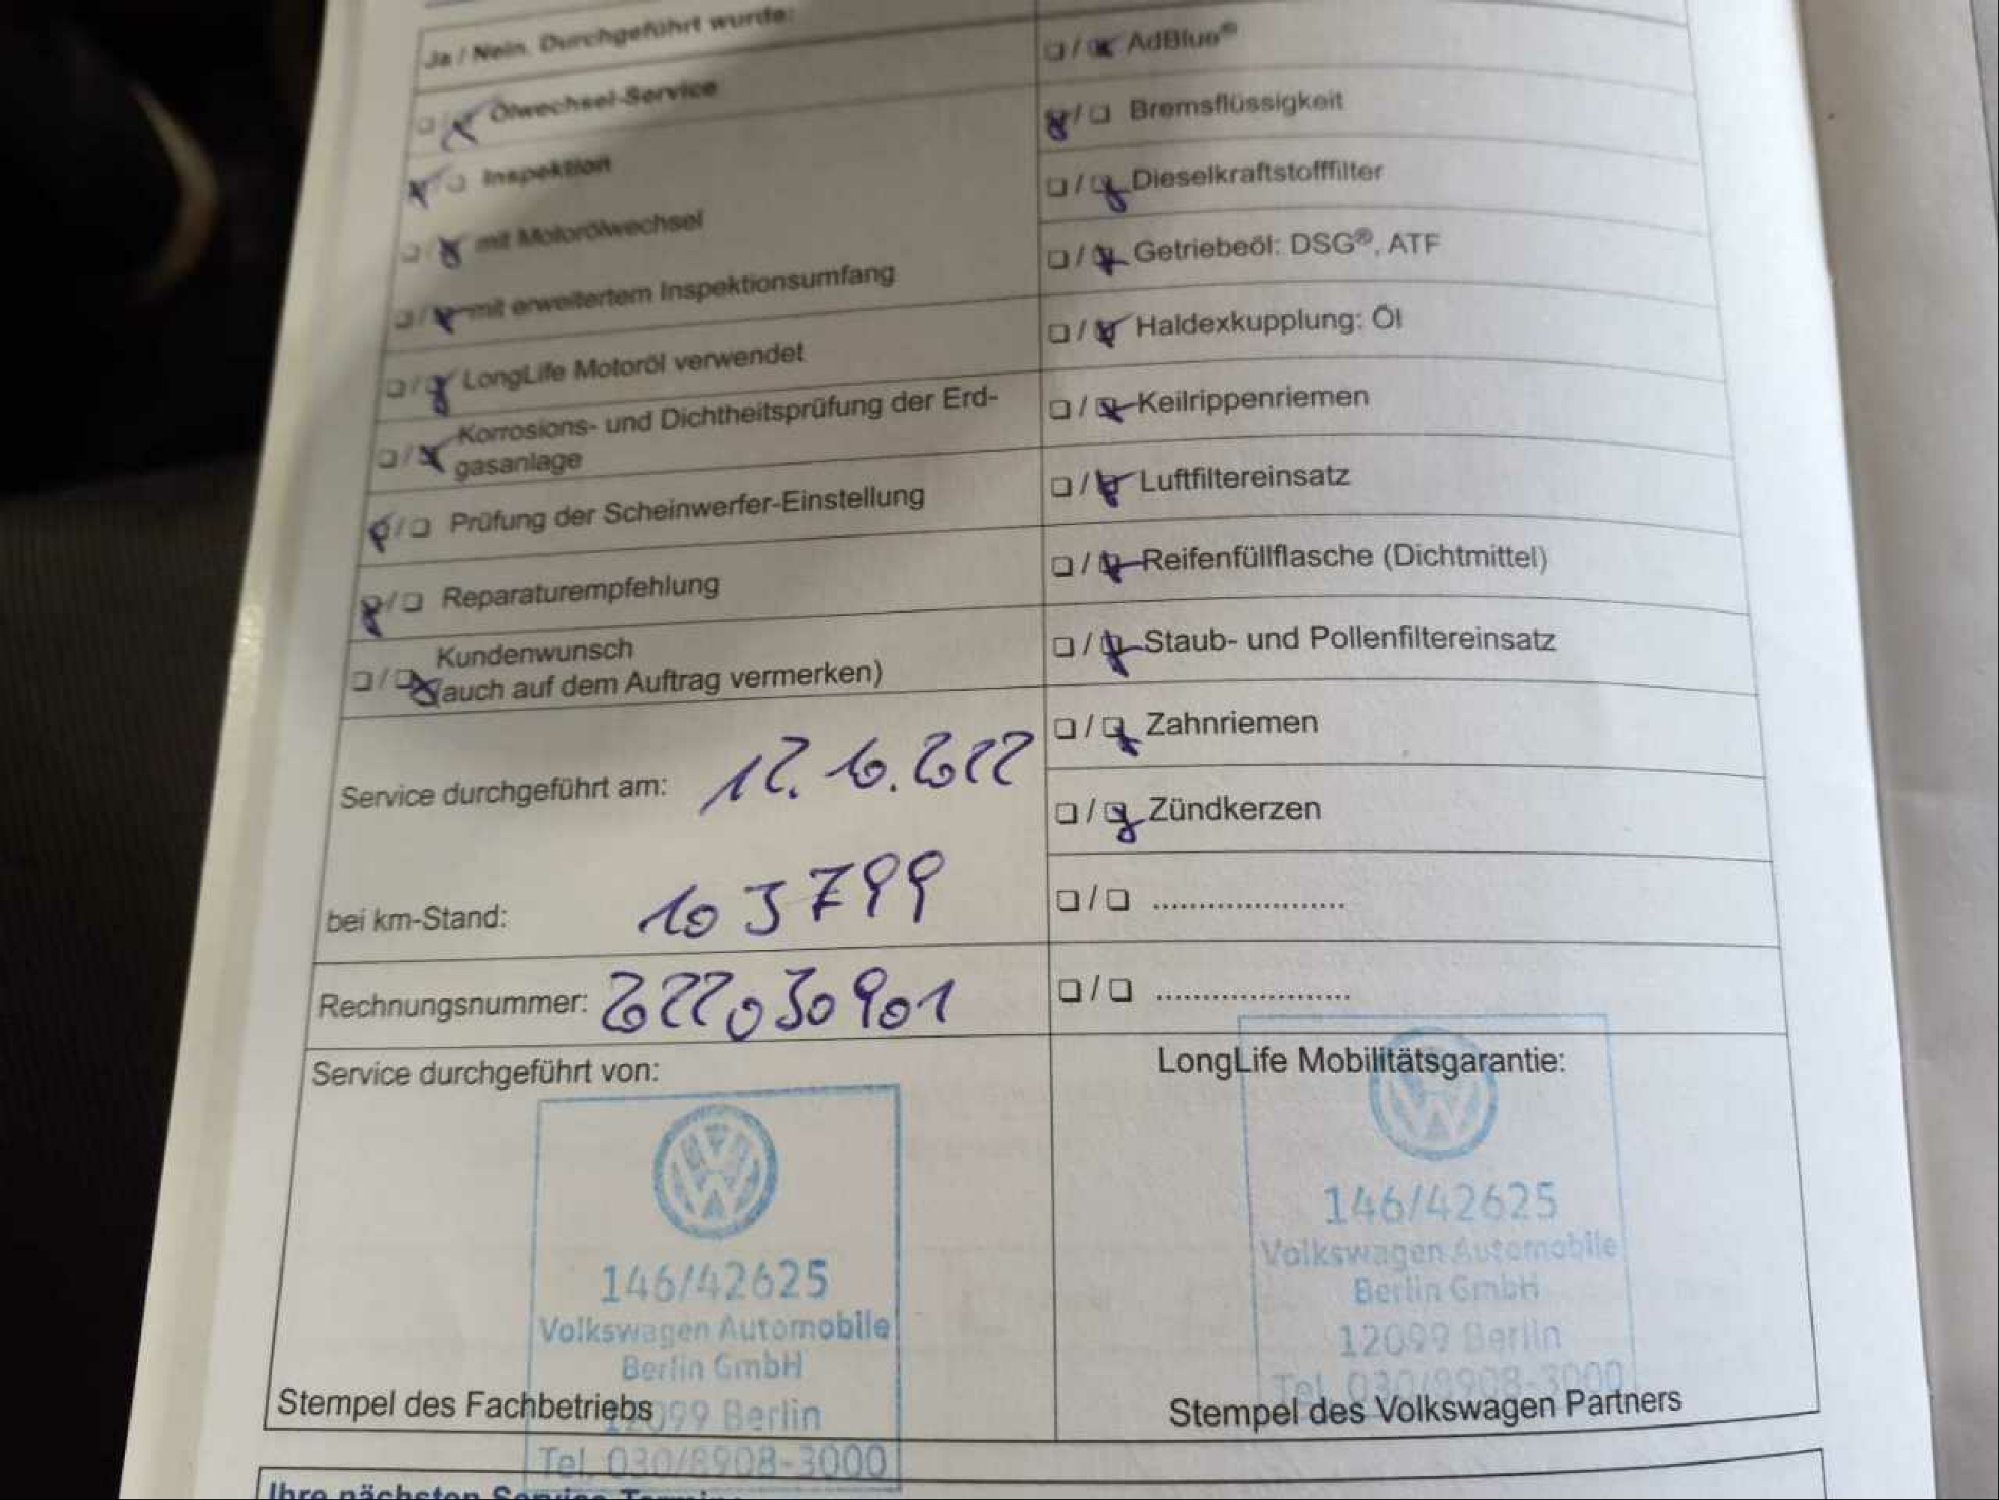 Ja / Nein. Durchgeführt wurde:
Ölwechsel-Service
Inspektion
mit Motorölwechsel
mit erweitertem Inspektionsumfang
LongLife Motoröl verwendet
Korrosions- und Dichtheitsprüfung der Erd-
gasanlage
Prüfung der Scheinwerfer-Einstellung
Reparaturempfehlung
Kundenwunsch
(auch auf dem Auftrag vermerken)
Service durchgeführt am: 12.10.2022
bei km-Stand: 103799
Rechnungsnummer: 222030901
AdBlue®
Bremsflüssigkeit
Dieselkraftstofffilter
Getriebeöl: DSG®, ATF
Haldexkupplung: Öl
Keilrippenriemen
Luftfiltereinsatz
Reifenfüllflasche (Dichtmittel)
Staub- und Pollenfiltereinsatz
Zahnriemen
Zündkerzen
Service durchgeführt von:
146/42625
Volkswagen Automobile
Berlin GmbH
12099 Berlin
Tel. 030/8908-3000
Stempel des Fachbetriebs
LongLife Mobilitätsgarantie:
146/42625
Volkswagen Automobile
Berlin GmbH
12099 Berlin
Tel. 030/8908-3000
Stempel des Volkswagen Partners
Ihre nächsten Service-Termine